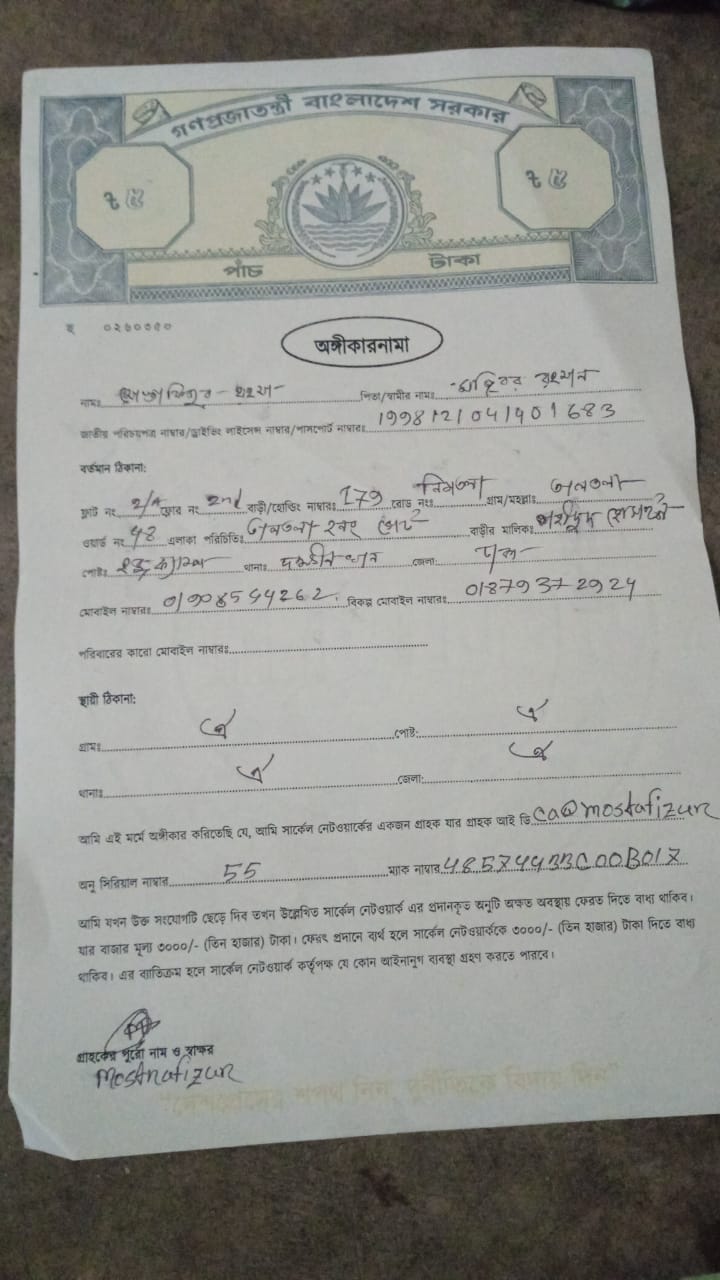 গণপ্রজাতন্ত্রী বাংলাদেশ সরকার
৳ ৫ ৳ ৫
পাঁচ টাকা
ছ ০২৬০৩৫০
অঙ্গীকারনামা
নামঃ পিতা/স্বামীর নামঃ রহমান
জাতীয় পরিচয়পত্র নাম্বার/ড্রাইভিং লাইসেন্স নাম্বার/পাসপোর্ট নাম্বারঃ 19981210411901683
বর্তমান ঠিকানা:
ফ্লাট নং 2/A ফ্লোর নং 2nd বাড়ী/হোল্ডিং নাম্বারঃ 179 রোড নংঃ গ্রাম/মহল্লাঃ
ওয়ার্ড নং 48 এলাকা পরিচিতিঃ বাড়ীর মালিকঃ
পোষ্টঃ থানাঃ দক্ষীন খান জেলাঃ ঢাকা
মোবাইল নাম্বারঃ বিকল্প মোবাইল নাম্বারঃ 01879372924
পরিবারের কারো মোবাইল নাম্বারঃ
স্থায়ী ঠিকানা:
গ্রামঃ ঐ পোষ্ট: ঐ
থানাঃ ঐ জেলা: ঐ
আমি এই মর্মে অঙ্গীকার করিতেছি যে, আমি সার্কেল নেটওয়ার্কের একজন গ্রাহক যার গ্রাহক আই ডি ca@mostafizur
অনু সিরিয়াল নাম্বার 55 ম্যাক নাম্বার 48574433C00B017
আমি যখন উক্ত সংযোগটি ছেড়ে দিব তখন উল্লেখিত সার্কেল নেটওয়ার্ক এর প্রদানকৃত অনুটি অক্ষত অবস্থায় ফেরত দিতে বাধ্য থাকিব।
যার বাজার মূল্য ৩০০০/- (তিন হাজার) টাকা। ফেরৎ প্রদানে ব্যর্থ হলে সার্কেল নেটওয়ার্ককে ৩০০০/- (তিন হাজার) টাকা দিতে বাধ্য
থাকিব। এর ব্যতিক্রম হলে সার্কেল নেটওয়ার্ক কর্তৃপক্ষ যে কোন আইনানুগ ব্যবস্থা গ্রহণ করতে পারবে।
গ্রাহকের পুরো নাম ও স্বাক্ষর
Mostafizur
"দেশপ্রেমের শপথ নিন, দুর্নীতিকে বিদায় দিন"